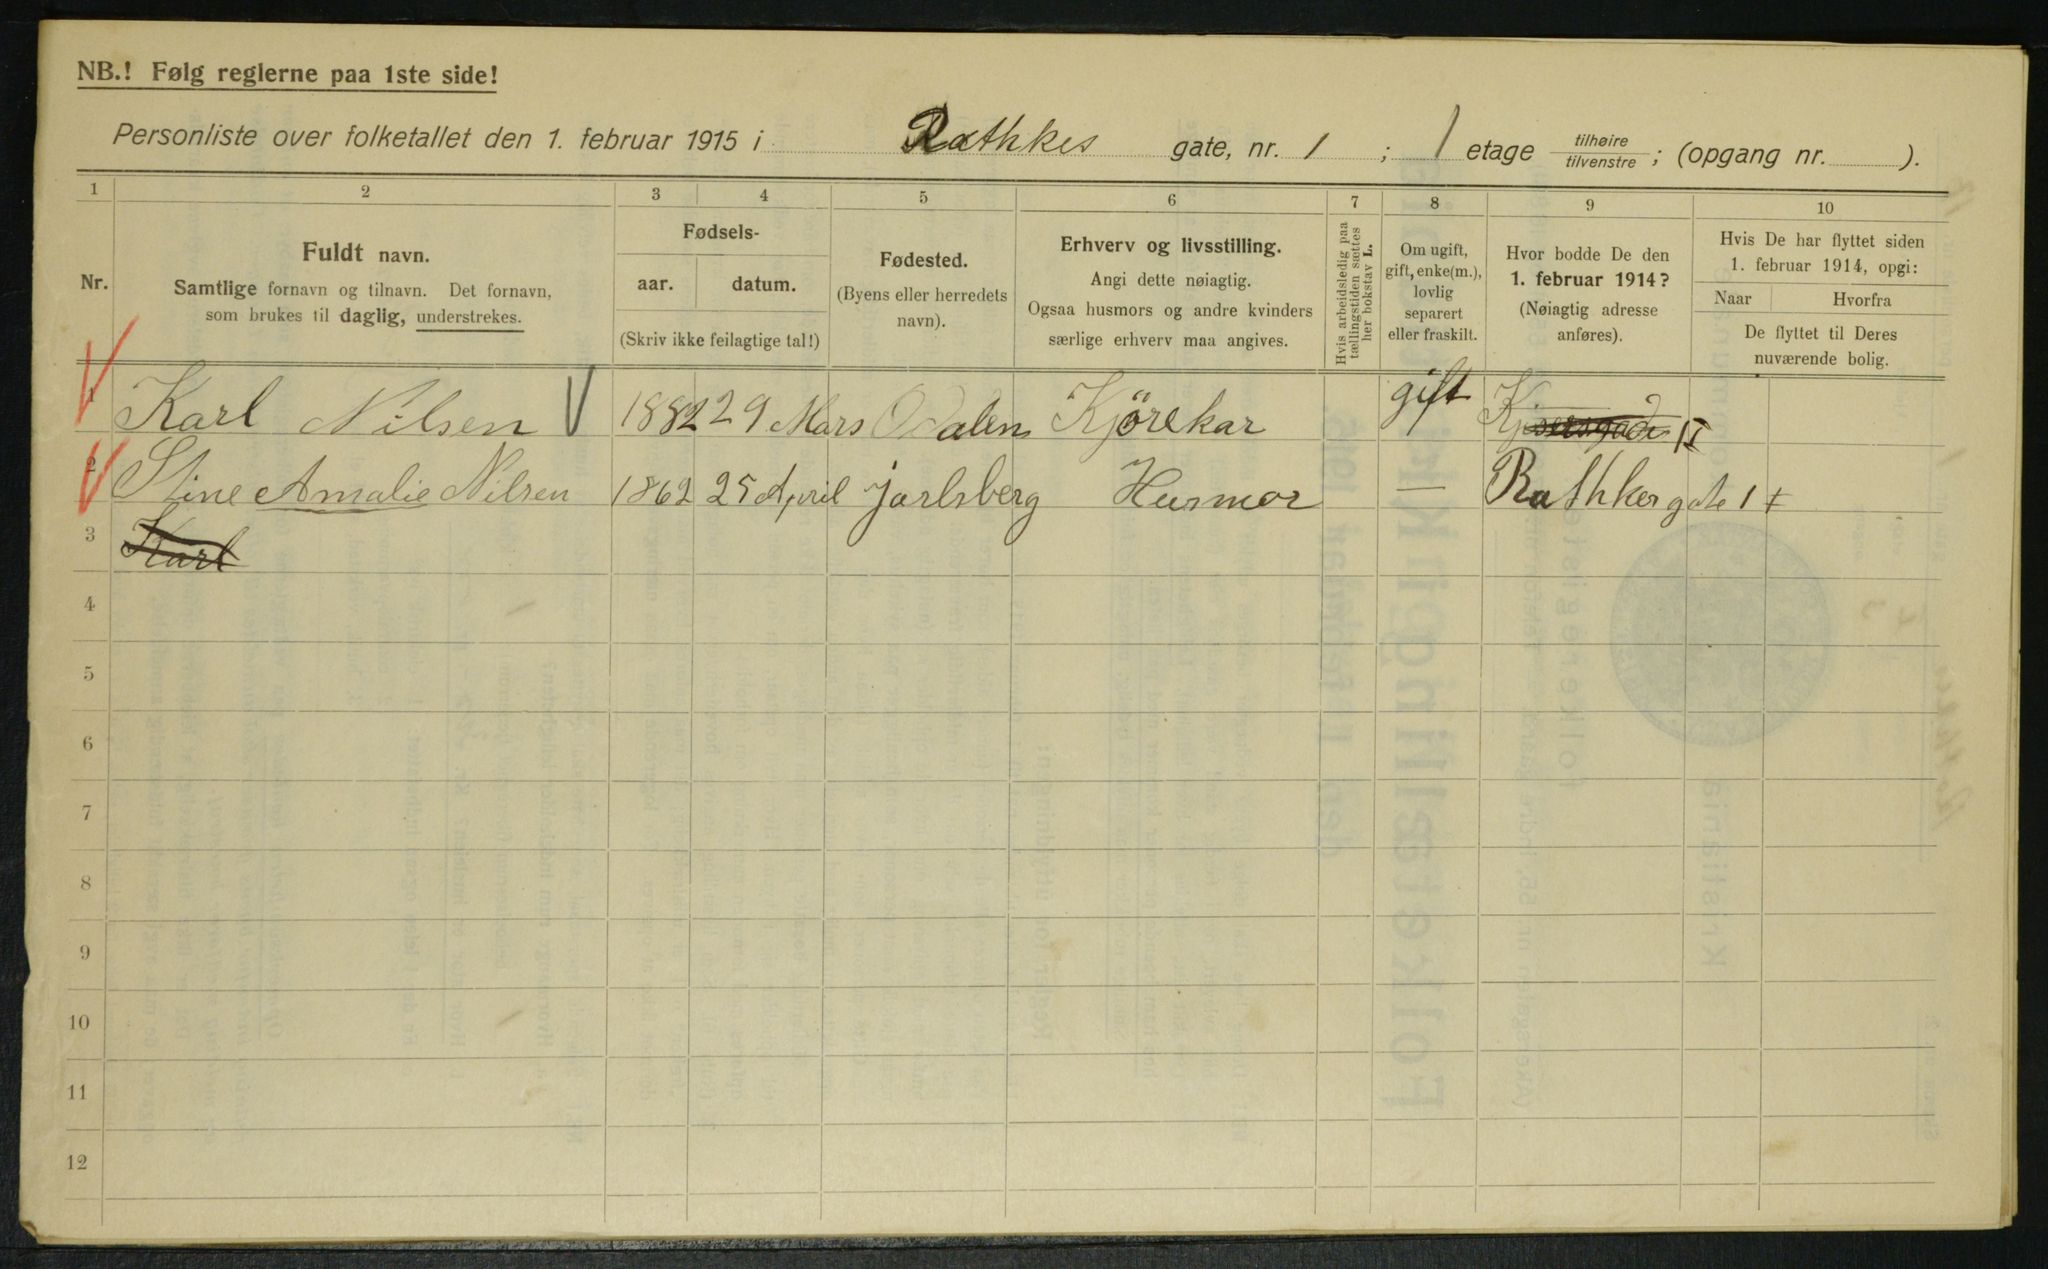 NB.! Følg reglerne paa 1ste side!
Personliste over folketallet den 1. februar 1915 i Rathkes gate, nr. 1 ; 1 etage tilhøire / tilvenstre ; (opgang nr. ).
1 2 3 4 5 6 7 8 9 10
Nr.
Fuldt navn.
Samtlige fornavn og tilnavn. Det fornavn,
som brukes til daglig, understrekes.
Fødsels-
aar. datum.
(Skriv ikke feilagtige tal!)
Fødested.
(Byens eller herredets
navn).
Erhverv og livsstilling.
Angi dette nøiagtig.
Ogsaa husmors og andre kvinders
særlige erhverv maa angives.
Hvis arbeidsledig paa
tællingstiden sættes
her bokstav L.
Om ugift,
gift, enke(m.),
lovlig
separert
eller fraskilt.
Hvor bodde De den
1. februar 1914?
(Nøiagtig adresse
anføres).
Hvis De har flyttet siden
1. februar 1914, opgi:
Naar Hvorfra
De flyttet til Deres
nuværende bolig.
1 Karl Nilsen 1882 29 Mars Odalen Kjørekar gift
2 Stine Amalie Nilsen 1862 25 April Jarlsberg Husmor — Rathkergate 1
3 Karl
4
5
6
7
8
9
10
11
12